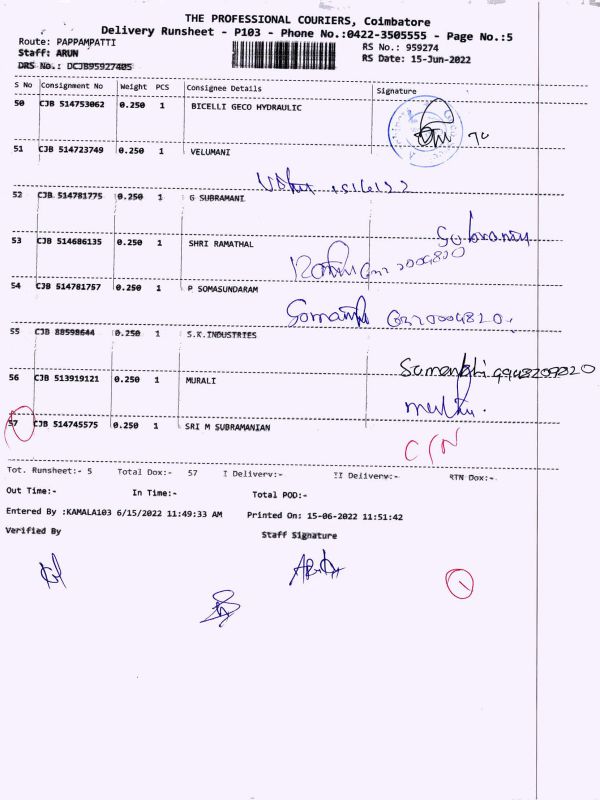 THE PROFESSIONAL COURIERS, Coimbatore
Delivery Runsheet - P103 - Phone No.:0422-3505555 - Page No.:5
Route: PAPPAMPATTI RS No.: 959274
Staff: ARUN RS Date: 15-Jun-2022
DRS No.: DCJB95927405
S No Consignment No Weight PCS Consignee Details Signature
50 CJB 514753062 0.250 1 BICELLI GECO HYDRAULIC
51 CJB 514723749 0.250 1 VELUMANI
52 CJB 514781775 0.250 1 G SUBRAMANI
53 CJB 514686135 0.250 1 SHRI RAMATHAL
54 CJB 514781757 0.250 1 P SOMASUNDARAM
55 CJB 88598644 0.250 1 S.K.INDUSTRIES
56 CJB 513919121 0.250 1 MURALI
57 CJB 514745575 0.250 1 SRI M SUBRAMANIAN
C/N
Tot. Runsheet:- 5 Total Dox:- 57 I Delivery:- II Delivery:- RTN Dox:-
Out Time:- In Time:- Total POD:-
Entered By :KAMALA103 6/15/2022 11:49:33 AM Printed On: 15-06-2022 11:51:42
Verified By Staff Signature